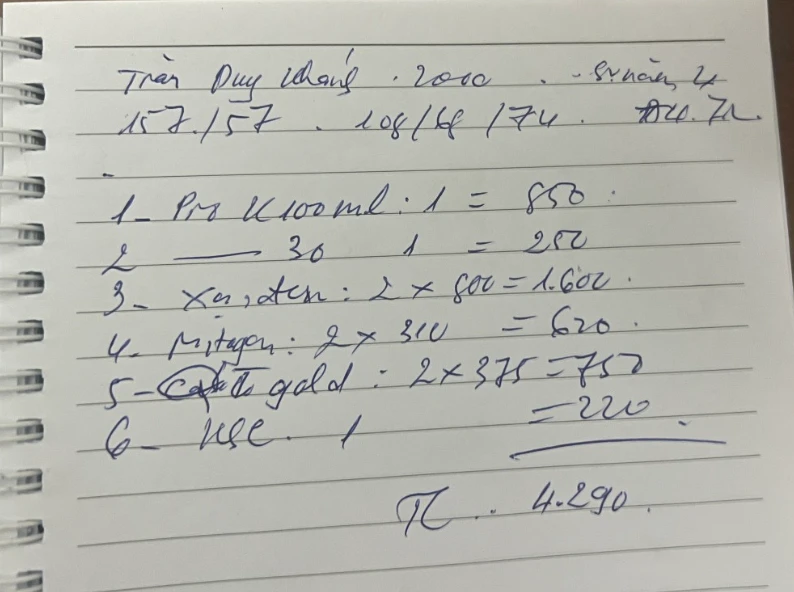 Trần Duy Khánh . 2000 . - Sv năm 4
157/57 . 108/68 /74 .
1- Pro K 100ml : 1 = 850 .
2 —— 30 1 = 250
3- : 2 × 800 = 1.600 .
4- Mitagen : 2 × 310 = 620 .
5- gold : 2 × 375 = 750
6- KSC . 1 = 220 .
TC .. 4.290 .